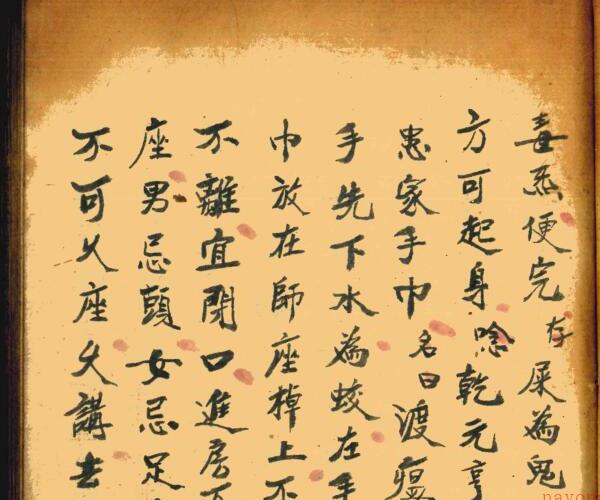 毒炁便完存屎為鬼
方可起身唸乾元亨
患家手巾名曰渡瘟
手先下水為蛟在手
巾放在師座掉上不
不離宜閉口進房
座男忌頭女忌足
不可久座久講
nayo